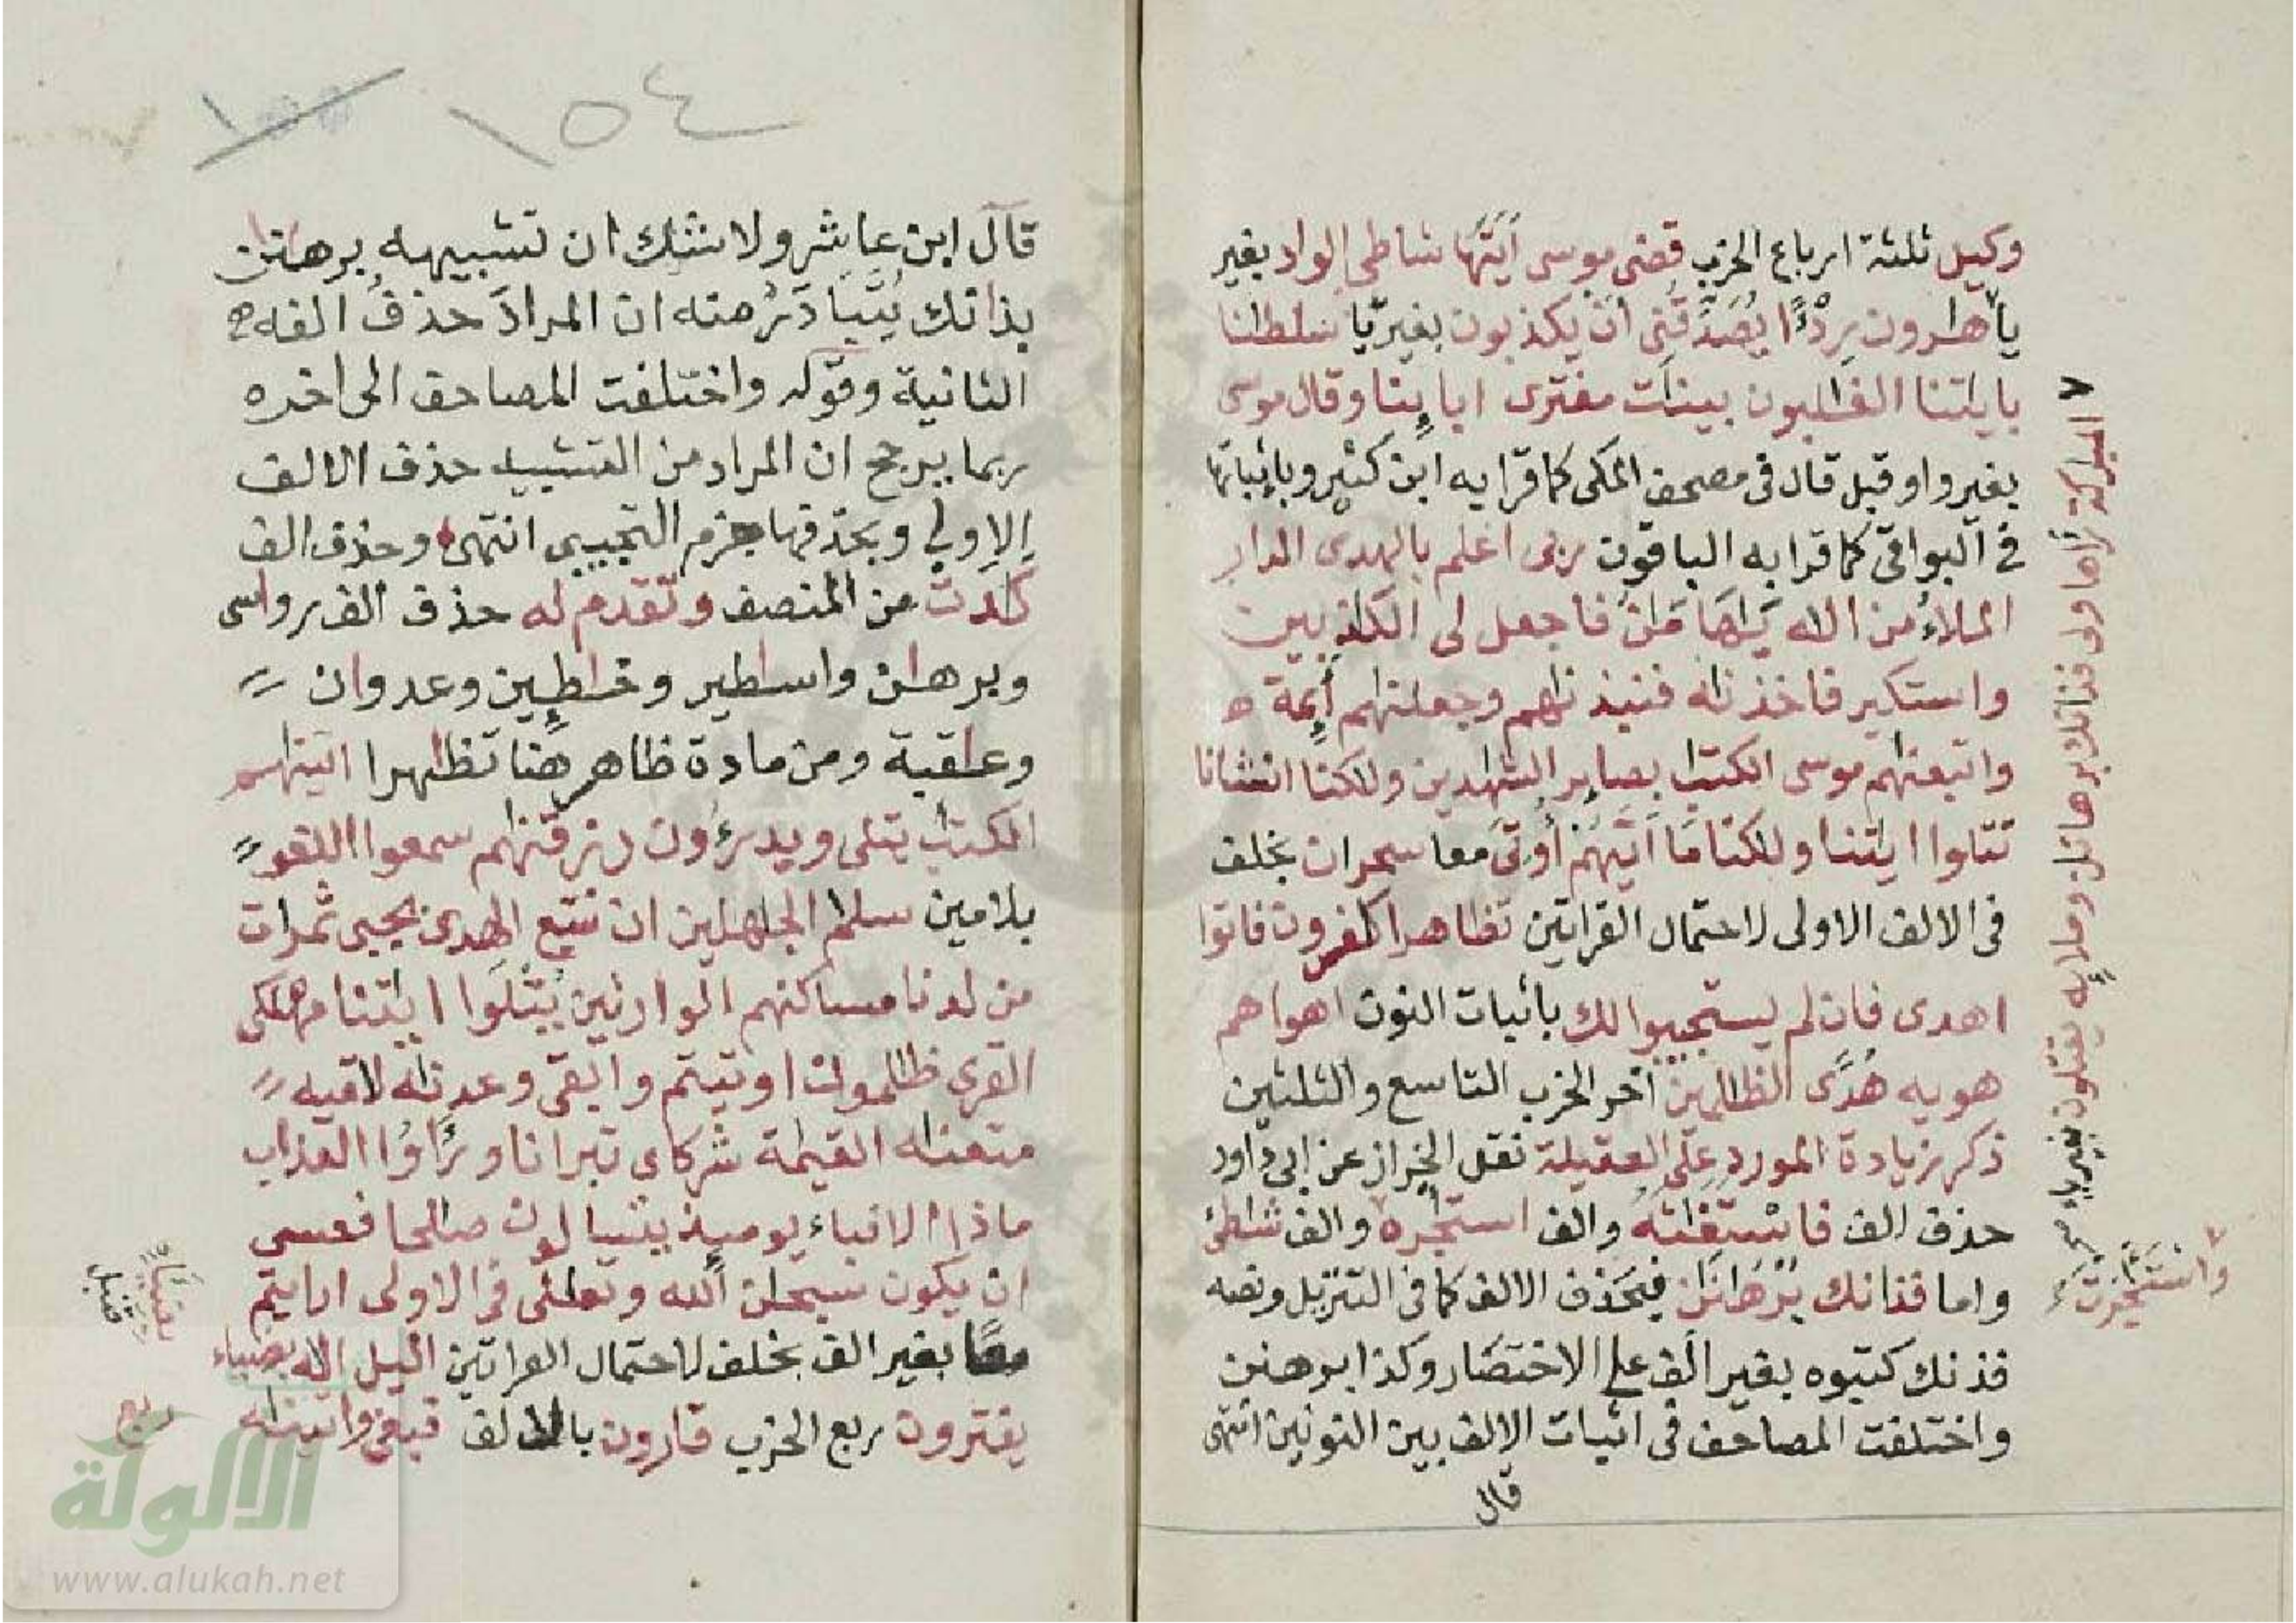 وكيل ثلثة ارباع الحزب قضى موسى اتيها شاطى الواد بغير
يا هرون ردءا يصدقنى ان يكذبون بغير يا سلطنا
بايتنا الغلبون بينت مفترى اباينا وقال موسى
بغير واو قبل قال فى مصحف المكى كما قرا به ابن كثير وباثباتها
فى البواقى كما قرا به الباقون ربى اعلم بالهدى الدار
الملاء من اله فاجعل لى الكذبين
واستكبر فاخذنه فنبذنهم وجعلنهم أئمة
واتبعنهم موسى الكتب بصاير الشهدين ولكنا انشانا
تتلوا ايتنا ولكنا ما اتيهم أوتى معا سحران بخلف
فى الالف الاولى لاحتمال القراتين تظاهرا كفرون فاتوا
اهدى فان لم يستجيبوا لك باثبات النون اهواهم
هويه هُدًى الظلمين اخر الحزب التاسع والثلثين
ذكر زيادة المورد على العقيلة نقل الخراز عن ابى داود
حذف الف فاستغثه والف استجره والف شطئ
واما فذانك برهانن فبحذف الالف كما فى التنزيل ونصه
فذنك كتبوه بغير الف على الاختصار وكذا برهنن
واختلفت المصاحف فى اثبات الالف بين النونين انتهى
قال
المبركة رءاها ولى فذانك برهانن وملايه يقتلون بغير ياء صح
واستجرت
١٥٤
قال ابن عاشر ولا شك ان تشبيهه برهنن
بذانك يُتبادَرُ منه ان المرادَ حذفُ الفه
الثانية وقوله واختلفت المصاحف الى اخره
ربما يرجح ان المراد من التشبيه حذف الالف
الاولى وبحذفها جزم التجيبى انتهى وحذف الف
كادت من المنصف وتقدم له حذف الف رواسى
وبرهن واسطير وخطين وعدوان
وعقبة ومن مادة ظاهر هنا تظهرا اتينهم
الكتب يتلى ويدرءون رزقنهم سمعوا اللغو
بلامين سلم الجهلين ان نتبع الهدى يجبى ثمرات
من لدنا مساكنهم الوارثين يتلوا ايتنا مهلكى
القرى ظلمون اوتيتم وابقى وعدنه لاقيه
متعنه القيمة شركاى تبرانا ورأوا العذاب
ماذا الانباء يوميذ يتسالون صالحا فعسى
ان يكون سبحن الله وتعلى فى الاولى ارايتم
معا بغير الف بخلف لاحتمال القراتين اليل اله بضياء
يفترون ربع الحزب قارون بالالف فبغى واتينه
قنبل
ربع
الألوكة
www.alukah.net